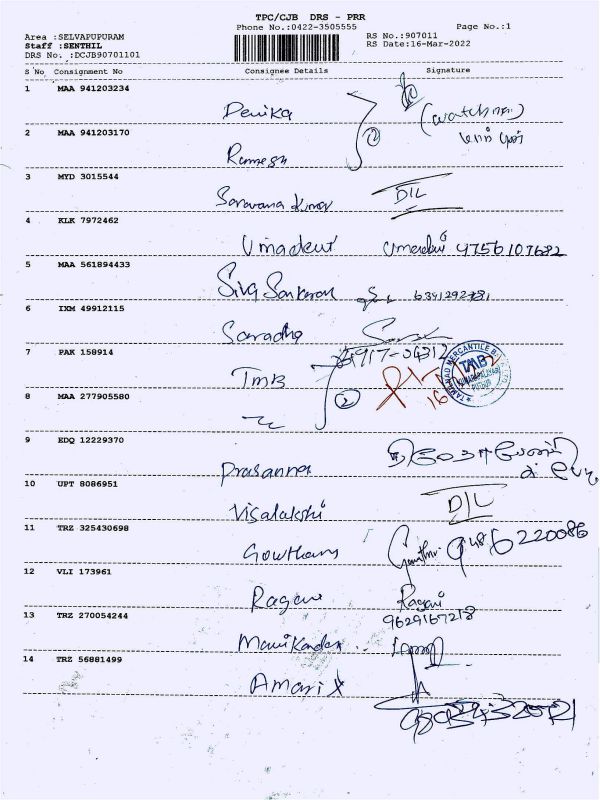 TPC/CJB DRS - PRR
Phone No.:0422-3505555
Page No.:1
Area :SELVAPUPURAM
RS No.:907011
Staff :SENTHIL
RS Date:16-Mar-2022
DRS No. :DCJB90701101
S No Consignment No Consignee Details Signature
1 MAA 941203234
Devika
2 MAA 941203170
Ramesh
3 MYD 3015544
Saravana Kumar D/L
4 KLK 7972462
Umadevi Umadevi 9756107682
5 MAA 561894433
Siva Sankaran 6391292781
6 IXM 49912115
Saradha
7 PAK 158914
TMB
8 MAA 277905580
2
TAMILNAD MERCANTILE BANK LTD.
TMB
9 EDQ 12229370
Prasanna
10 UPT 8086951
Visalakshi D/L
11 TRZ 325430698
Gowtham 9486220086
12 VLI 173961
Ragavi Ragavi
9629167218
13 TRZ 270054244
Manikandan
14 TRZ 56881499